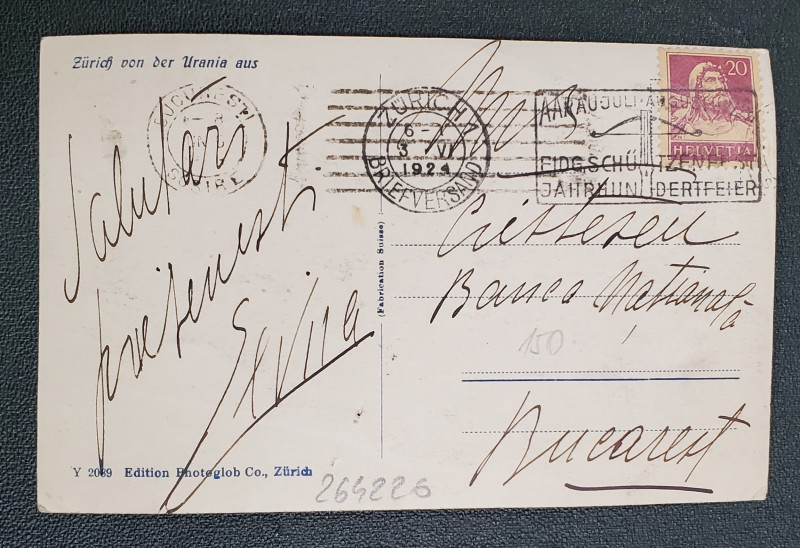 Zürich von der Urania aus
Salutări
prietenești
Elvira
BUCUREST
ZÜRICH
3 VI
1924
BRIEFVERSAND
AARAU JULI-AUGUST
EIDG. SCHÜTZENFEIER
JAHRHUNDERTFEIER
20
HELVETIA
Cristescu
Banca Națională
150
Bucarest
(Fabrication Suisse)
Y 2039 Edition Photoglob Co., Zürich
264226